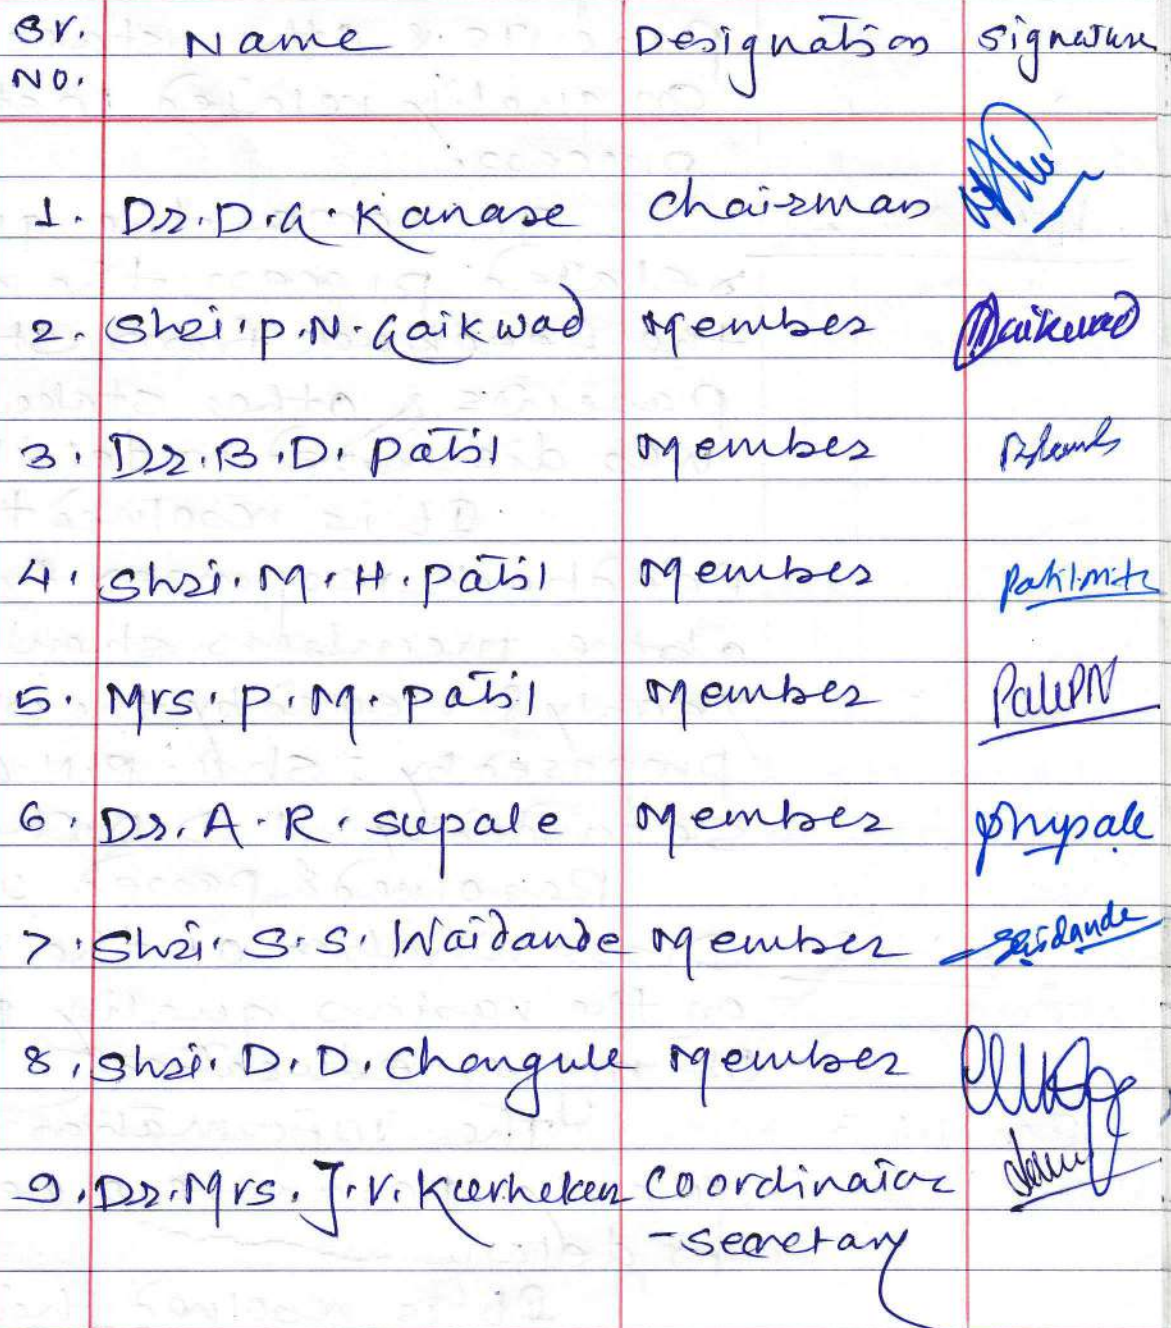 Sr. Name Designation Signature
No.
1. Dr. D. G. Kanase Chairman
2. Shri. P. N. Gaikwad Member Gaikwad
3. Dr. B. D. Patil Member
4. Shri. M. H. Patil Member
5. Mrs. P. M. Patil Member
6. Dr. A. R. Supale Member
7. Shri. S. S. Waidande Member
8. Shri. D. D. Chougule Member
9. Dr. Mrs. J. V. Kurhekar Coordinator
- Secretary